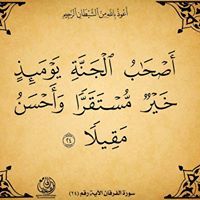 أَعُوذُ بِاللَّهِ مِنَ ٱلشَّيْطَانِ ٱلرَّجِيمِ
أَصْحَٰبُ ٱلْجَنَّةِ يَوْمَئِذٍ
خَيْرٌ مُّسْتَقَرًّا وَأَحْسَنُ
مَقِيلًا ٢٤
سورة الفرقان الآية رقم (٢٤)